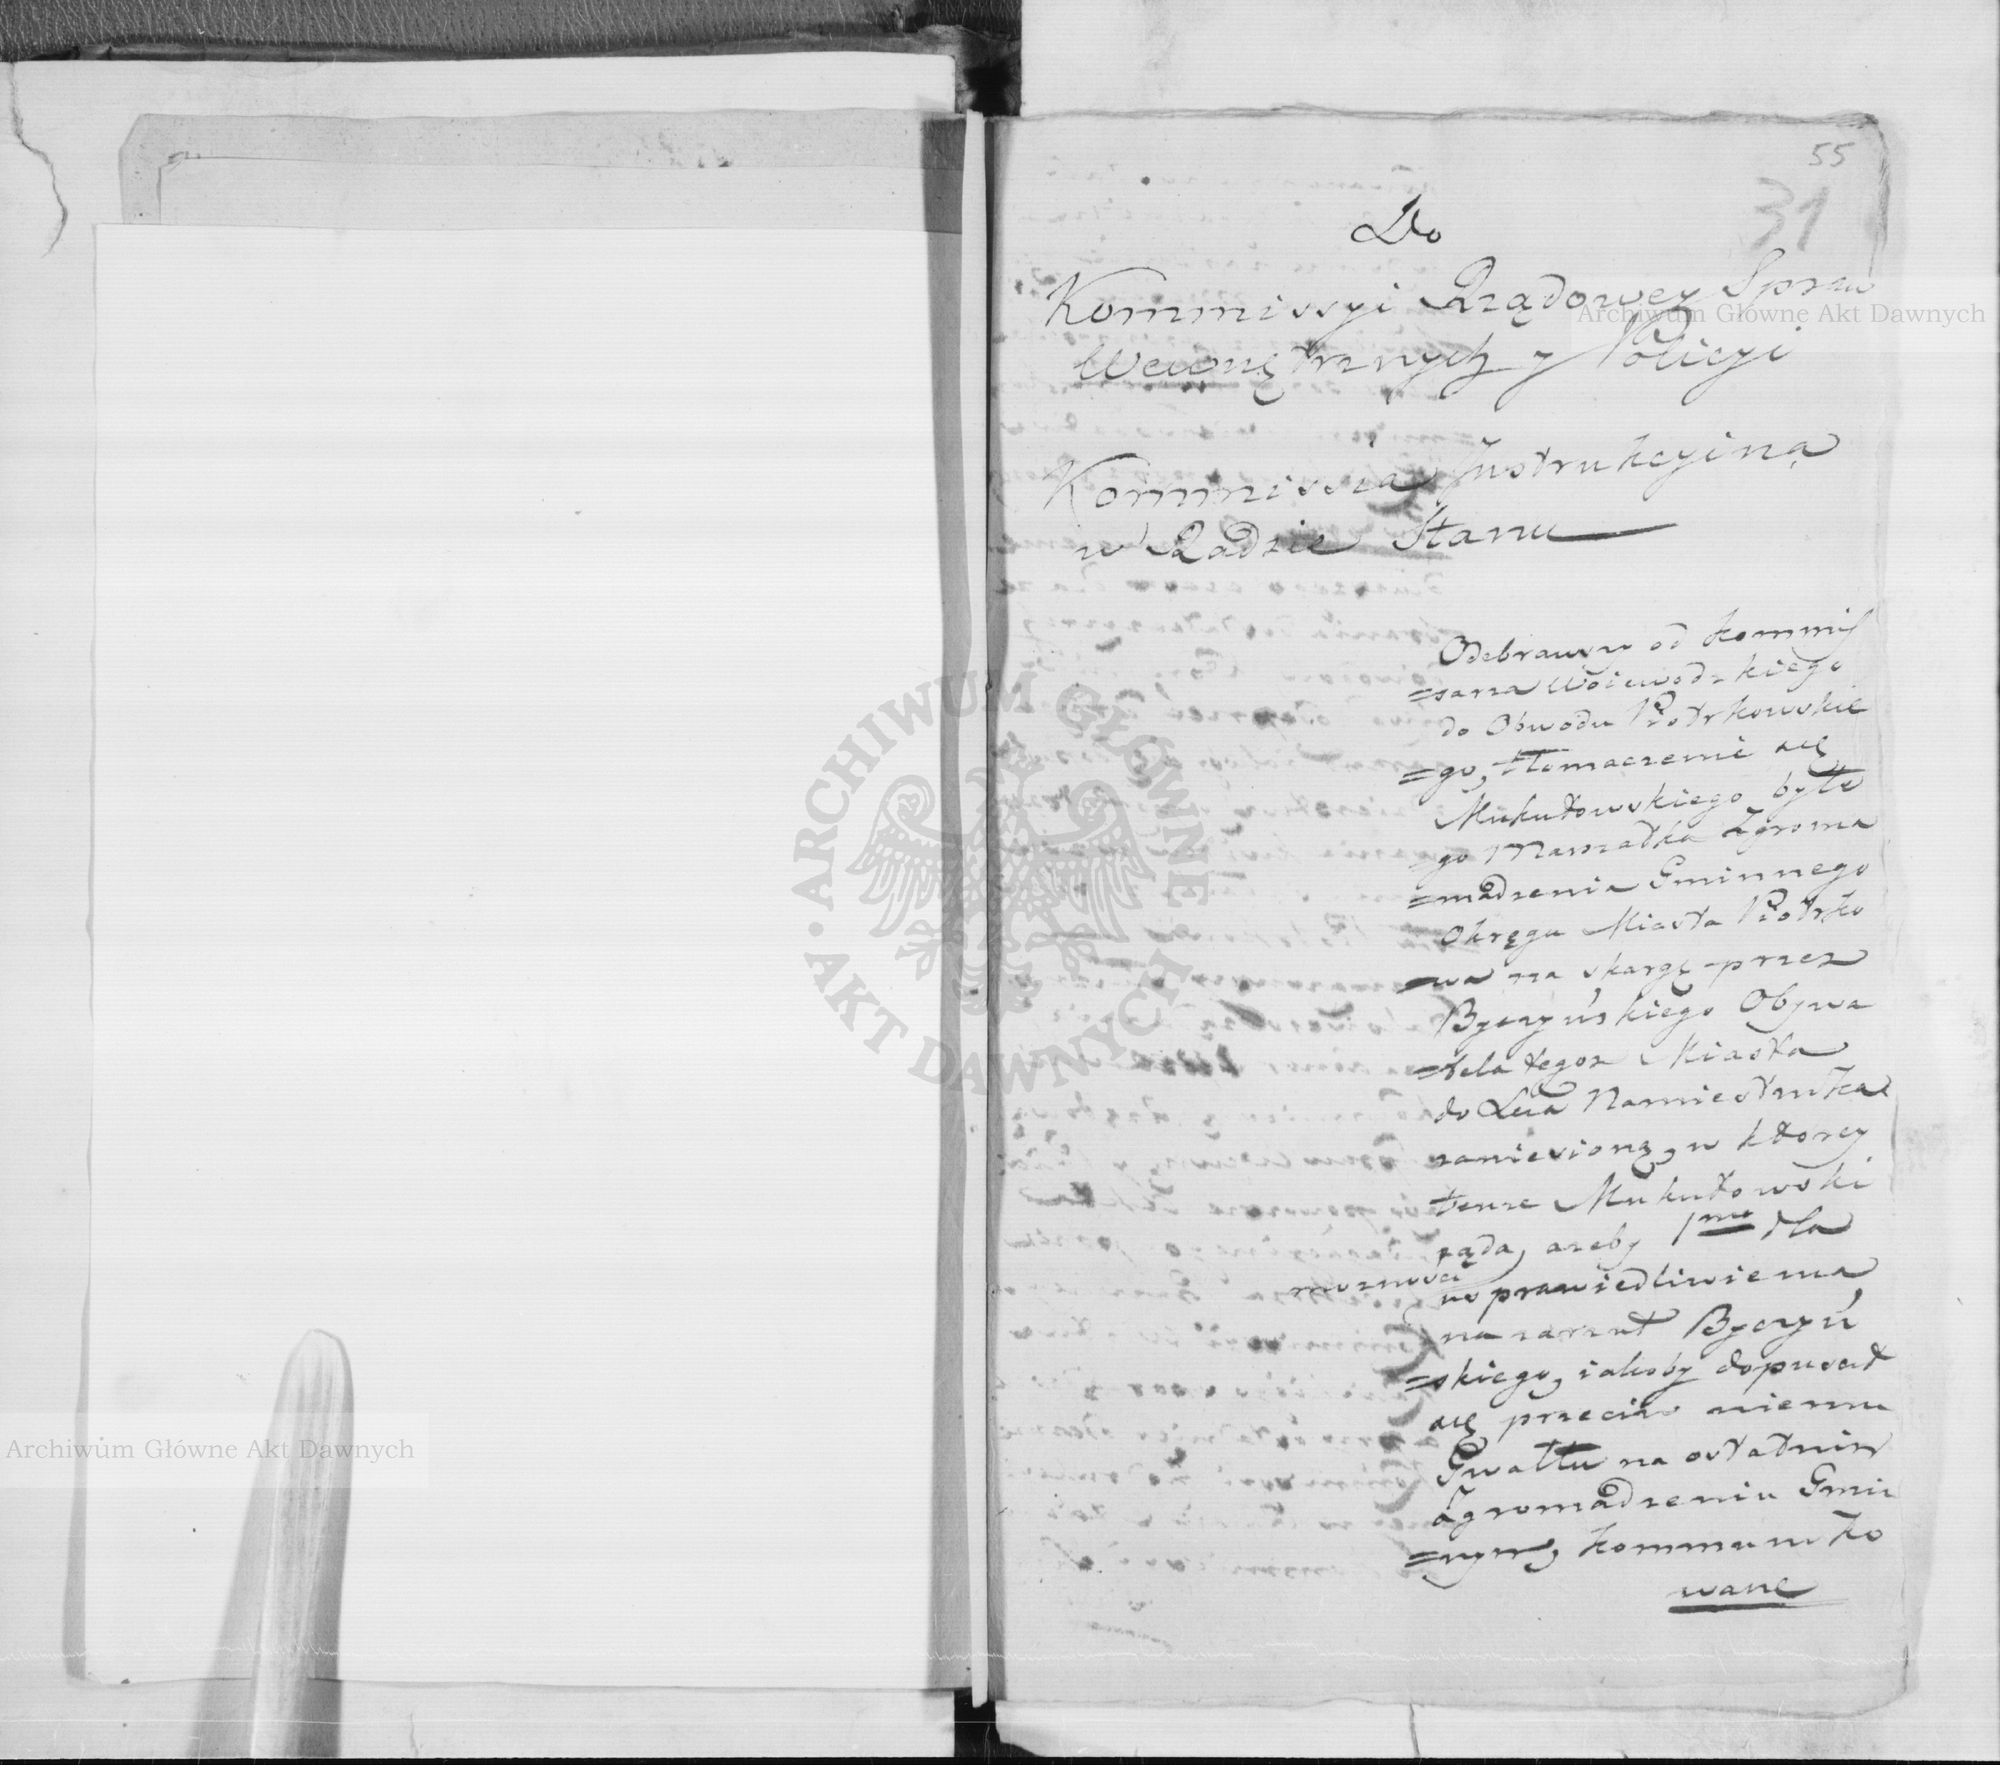 55
31
Do
Kommissyi Rządowey Spraw
Wewnętrznych y Policyi
Kommissia Instrukcyina
w Radzie Stanu
Odebrawszy od Kommis
=sarza Woiewodzkiego
do Obwodu Piotrkowskie
=go, tłomaczenie się
Mukułowskiego byłe
=go Marszałka Zgroma
=madzenia Gminnego
Okręgu Miasta Piotrko
=wa na skargę przez
Byczyńskiego Obywa
=tela tegoż Miasta
do Xcia Namiestnika
zaniesioną, w ktorey
tenże Mukułowski
żąda, ażeby 1mo dla
możności
usprawiedliwienia
na zarzut Byczyń
=skiego, iakoby dopuscił
się przeciw niemu
Gwałtu na ostatnim
Zgromadzeniu Gmin
=nym, kommuniko
wane
Archiwum Główne Akt Dawnych
Archiwum Główne Akt Dawnych
ARCHIWUM GŁÓWNE
AKT DAWNYCH